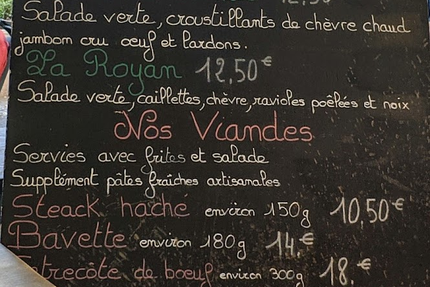 Salade verte, croustillants de chèvre chaud
jambom cru œuf et lardons.
La Royan 12,50€
Salade verte, caillettes, chèvre, ravioles poêlées et noix
Nos Viandes
Servies avec frites et salade
Supplément pâtes fraîches artisanales
Steack haché environ 150g 10,50€
Bavette environ 180g 14.€
Entrecôte de bœuf environ 300g 18.€